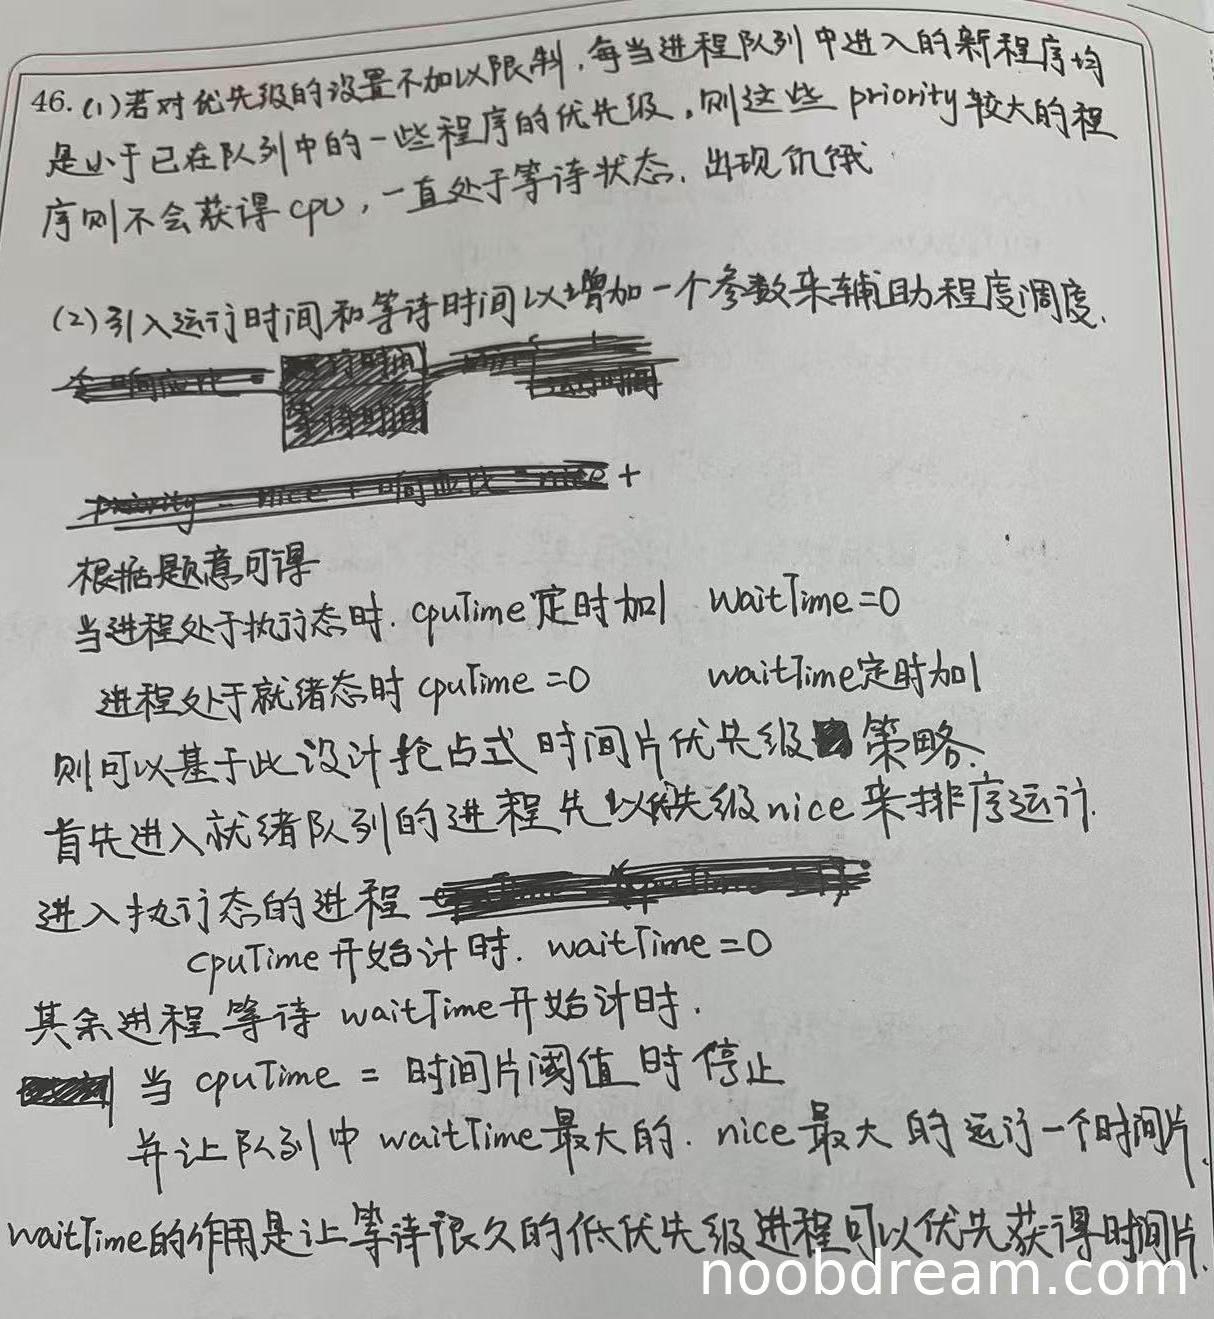 46. (1)若对优先级的设置不加以限制,每当进程队列中进入的新程序均
是小于已在队列中的一些程序的优先级,则这些priority较大的程
序则不会获得cpu,一直处于等待状态,出现饥饿
(2)引入运行时间和等待时间以增加一个参数来辅助程度调度.
+
根据题意可得
当进程处于执行态时. cpuTime定时加1 waitTime=0
进程处于就绪态时 cpuTime=0 waitTime定时加1
则可以基于此设计抢占式时间片优先级策略.
首先进入就绪队列的进程先以优先级nice来排序运行.
进入执行态的进程
cpuTime开始计时. waitTime=0
其余进程等待 waitTime开始计时.
当 cpuTime = 时间片阈值时停止
并让队列中 waitTime最大的. nice最大的运行一个时间片.
waitTime的作用是让等待很久的低优先级进程可以优先获得时间片.
noobdream.com